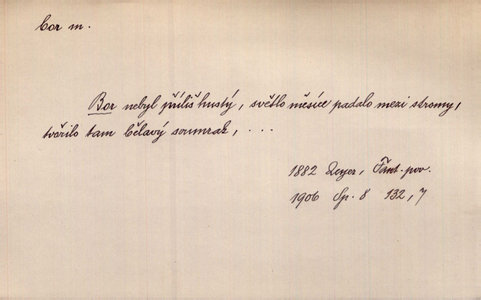 bor m.
Bor nebyl příliš hustý, světlo měsíce padalo mezi stromy,
tvořilo tam bělavý soumrak, ...
1882 Zeyer, Fant. pov.
1906 Sp. 8 132, 7